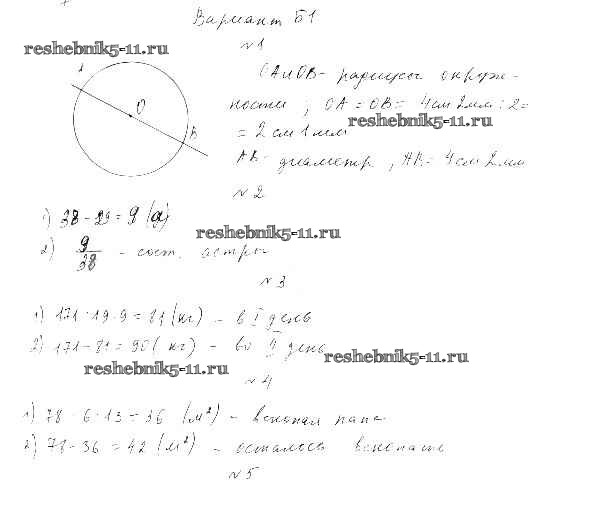 Вариант Б1
№1
reshebnik5-11.ru
A
O
B
ОА и ОВ - радиусы окруж-
ности, ОА = ОВ = 4см 2мм : 2 =
reshebnik5-11.ru
= 2 см 1 мм
АВ - диаметр, АВ = 4 см 2 мм
№2
1) 38 - 29 = 9 (а)
reshebnik5-11.ru
2) 9/38 - сост. астры
№3
1) 171 : 19 · 9 = 81 (кг) - в I день
2) 171 - 81 = 90 (кг) - во II день
reshebnik5-11.ru
reshebnik5-11.ru
№4
1) 78 · 6 : 13 = 36 (м²) - вскопал папа
2) 78 - 36 = 42 (м²) - осталось вскопать
№5